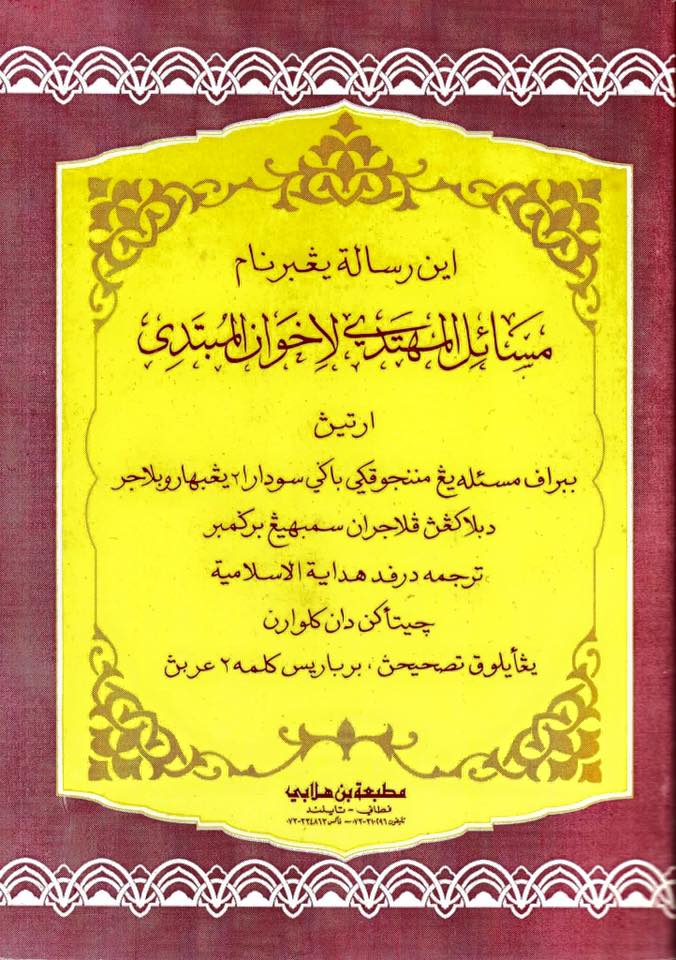 اين رسالة يڠبرنام
مَسَائِلُ المُهْتَدِي لِإِخْوَانِ المُبْتَدِي
ارتيڽ
ببراف مسئله يڠ مننجوقكي باكي سودارا٢ يڠبهارو بلاجر
دبلاكڠڽ ڤلاجران سمبهيڠ برݢمبر
ترجمه درفد هداية الاسلامية
چيتأكن دان كلوارن
يڠأيلوق تصحيحڽ، برباريس كلمه٢ عربڽ
مطبعة بن هلابي
فطاني - تايلند
تليفون ٣١٠٢٩٦-٠٧٣ - فاكس ٣٣٤٨٦٣-٠٧٣